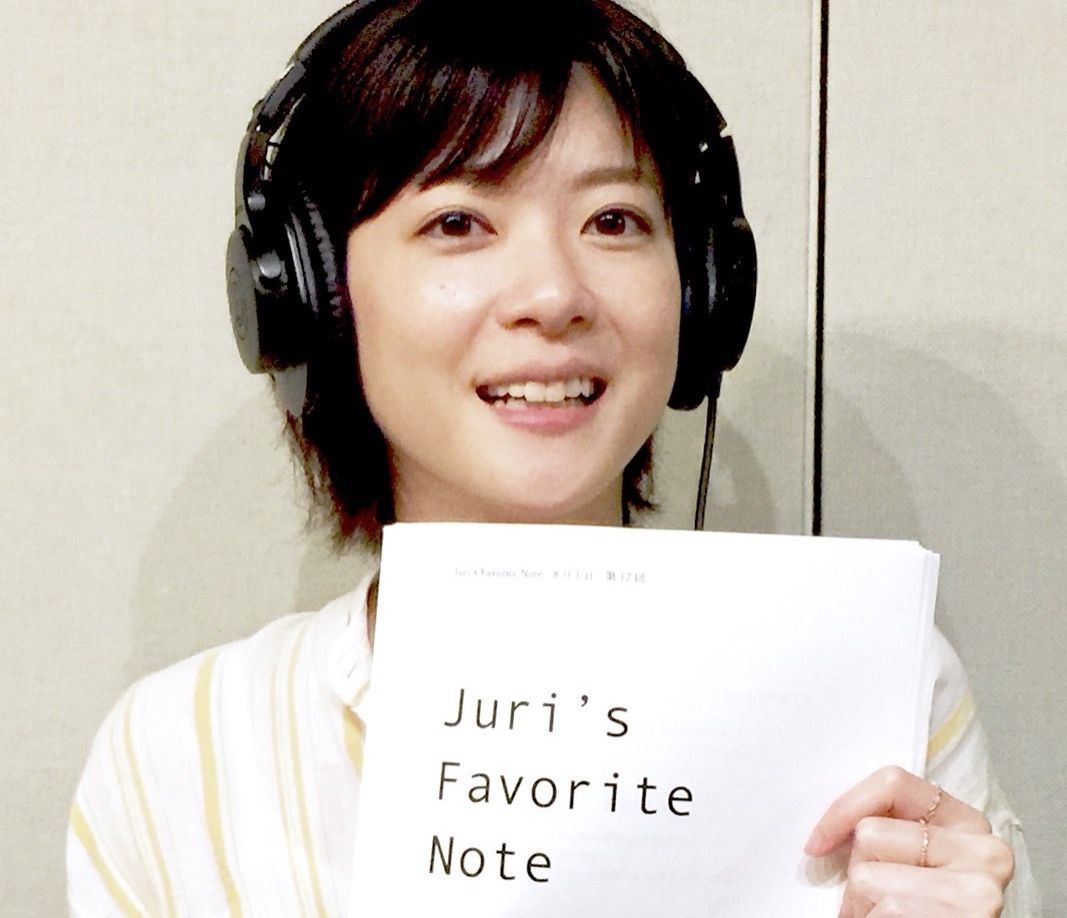 Juri's Favorite Note 8月1日 第17回
Juri's
Favorite
Note